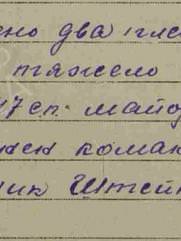 ено два гле
тяжело
17 сп. майо
жен коман
ник Штей